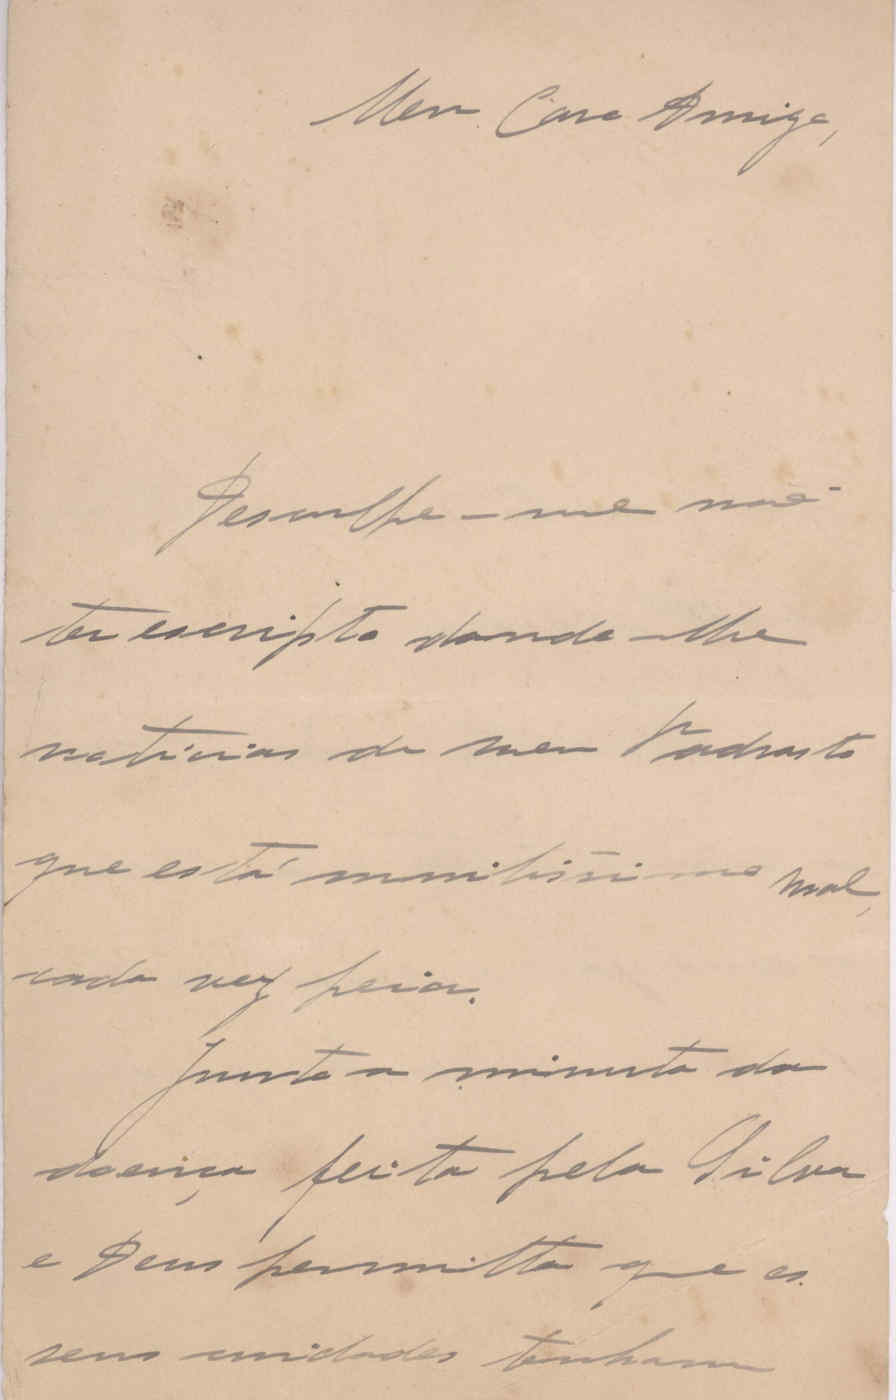 Meu Caro Amigo,
Desculpe-me não
ter escripto dando-lhe
noticias de meu Padrasto
que está muitissimo mal,
cada vez peior.
Junto a minuta da
doença feita pelo Silva
e Deus permitta que os
seus cuidados tenham